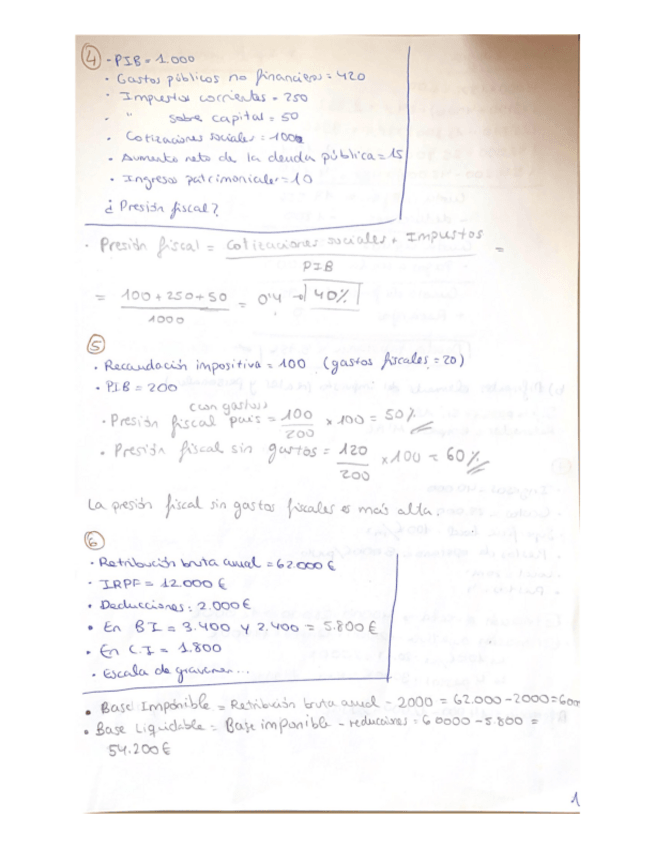 ④ · PIB = 1.000
· Gastos públicos no financieros = 420
· Impuestos corrientes = 250
· " sobre capital = 50
· Cotizaciones sociales = 100
· Aumento neto de la deuda pública = 15
· Ingresos patrimoniales = 10
¿Presión fiscal?
· Presión fiscal = Cotizaciones sociales + Impuestos / PIB =
= 100 + 250 + 50 / 1000 = 0'4 → 40%
⑤
· Recaudación impositiva = 100 (gastos fiscales = 20)
· PIB = 200
(con gastos)
· Presión fiscal país = 100 / 200 x 100 = 50%
· Presión fiscal sin gastos = 120 / 200 x 100 = 60%
La presión fiscal sin gastos fiscales es más alta.
⑥
· Retribución bruta anual = 62.000 €
· IRPF = 12.000 €
· Deducciones: 2.000 €
· En B I = 3.400 y 2.400 = 5.800 €
· En C.I = 1.800
· Escala de gravamen...
· Base Imponible = Retribución bruta anual - 2000 = 62.000 - 2000 = 600
· Base Liquidable = Base imponible - reducciones = 60000 - 5.800 =
54.200 €
1